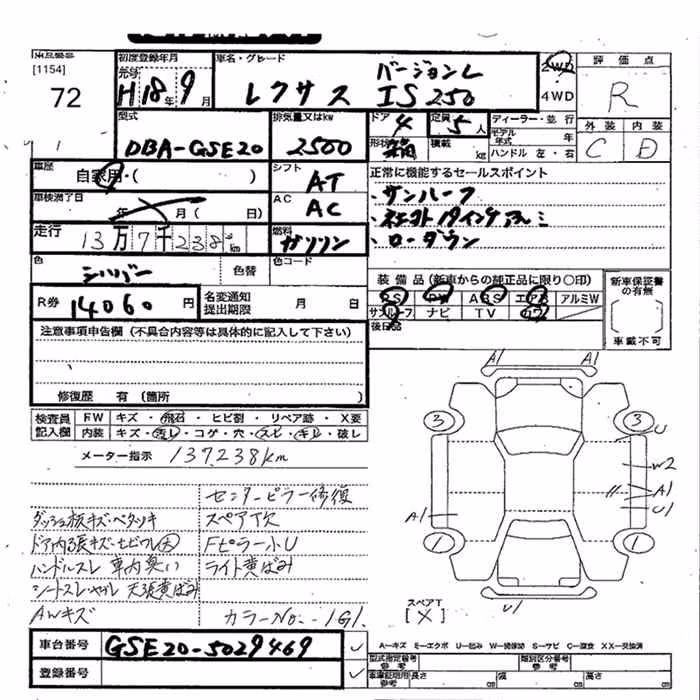 [1154]
72
初度登録年月
車名・グレード
元号
H 18年 9月
バージョンL
レクサス IS250
2WD
4WD
評価点
R
外装 内装
C D
型式
DBA-GSE20
排気量又はkw
2500
ドア
4
定員
5人
形状
箱
積載
kg
ディーラー・並行
モデル年式 年
ハンドル 左・右
車歴
自家用・( )
シフト
AT
正常に機能するセールスポイント
・サンルーフ
・ローダウン
車検満了日
年 月( 日)
AC
AC
走行
13万7千238km
燃料
ガソリン
色
シルバー
色替
色コード
装備品(新車からの部品に限り〇印)
PS PW ABS エアB アルミW
サンルーフ ナビ TV カワ
後日品
新車保証書の有無
車載不可
R券
14060円
名変通知提出期限
月 日
注意事項申告欄(不具合内容等は具体的に記入して下さい)
修復歴 有(箇所 )
検査員記入欄
FW キズ・飛石・ヒビ割・リペア跡・X要
内装 キズ・汚レ・コゲ・穴・スレ・キレ・破レ
メーター指示 137,238km
センターピラー修復
ダッシュ板キズ・ベタツキ スペアT欠
ドア内張キズ・モヒフレ大 Fピラー小U
ハンドルスレ 車内臭い ライト黄ばみ
シートスレ・ヤブレ 天張黄ばみ
AWキズ カラーNo.-1G1.
A1
A1
3
3
U
W2
A1
U1
A1
1
1
U1
スペアT
[X]
車台番号
GSE20-5029469
登録番号
A-キズ E-エクボ U-凹み W-補修跡 S-サビ C-腐食 XX-交換済
型式指定番号
参考
類別区分番号
参考
車庫証明用
参考
長さ cm
幅 cm
高さ cm